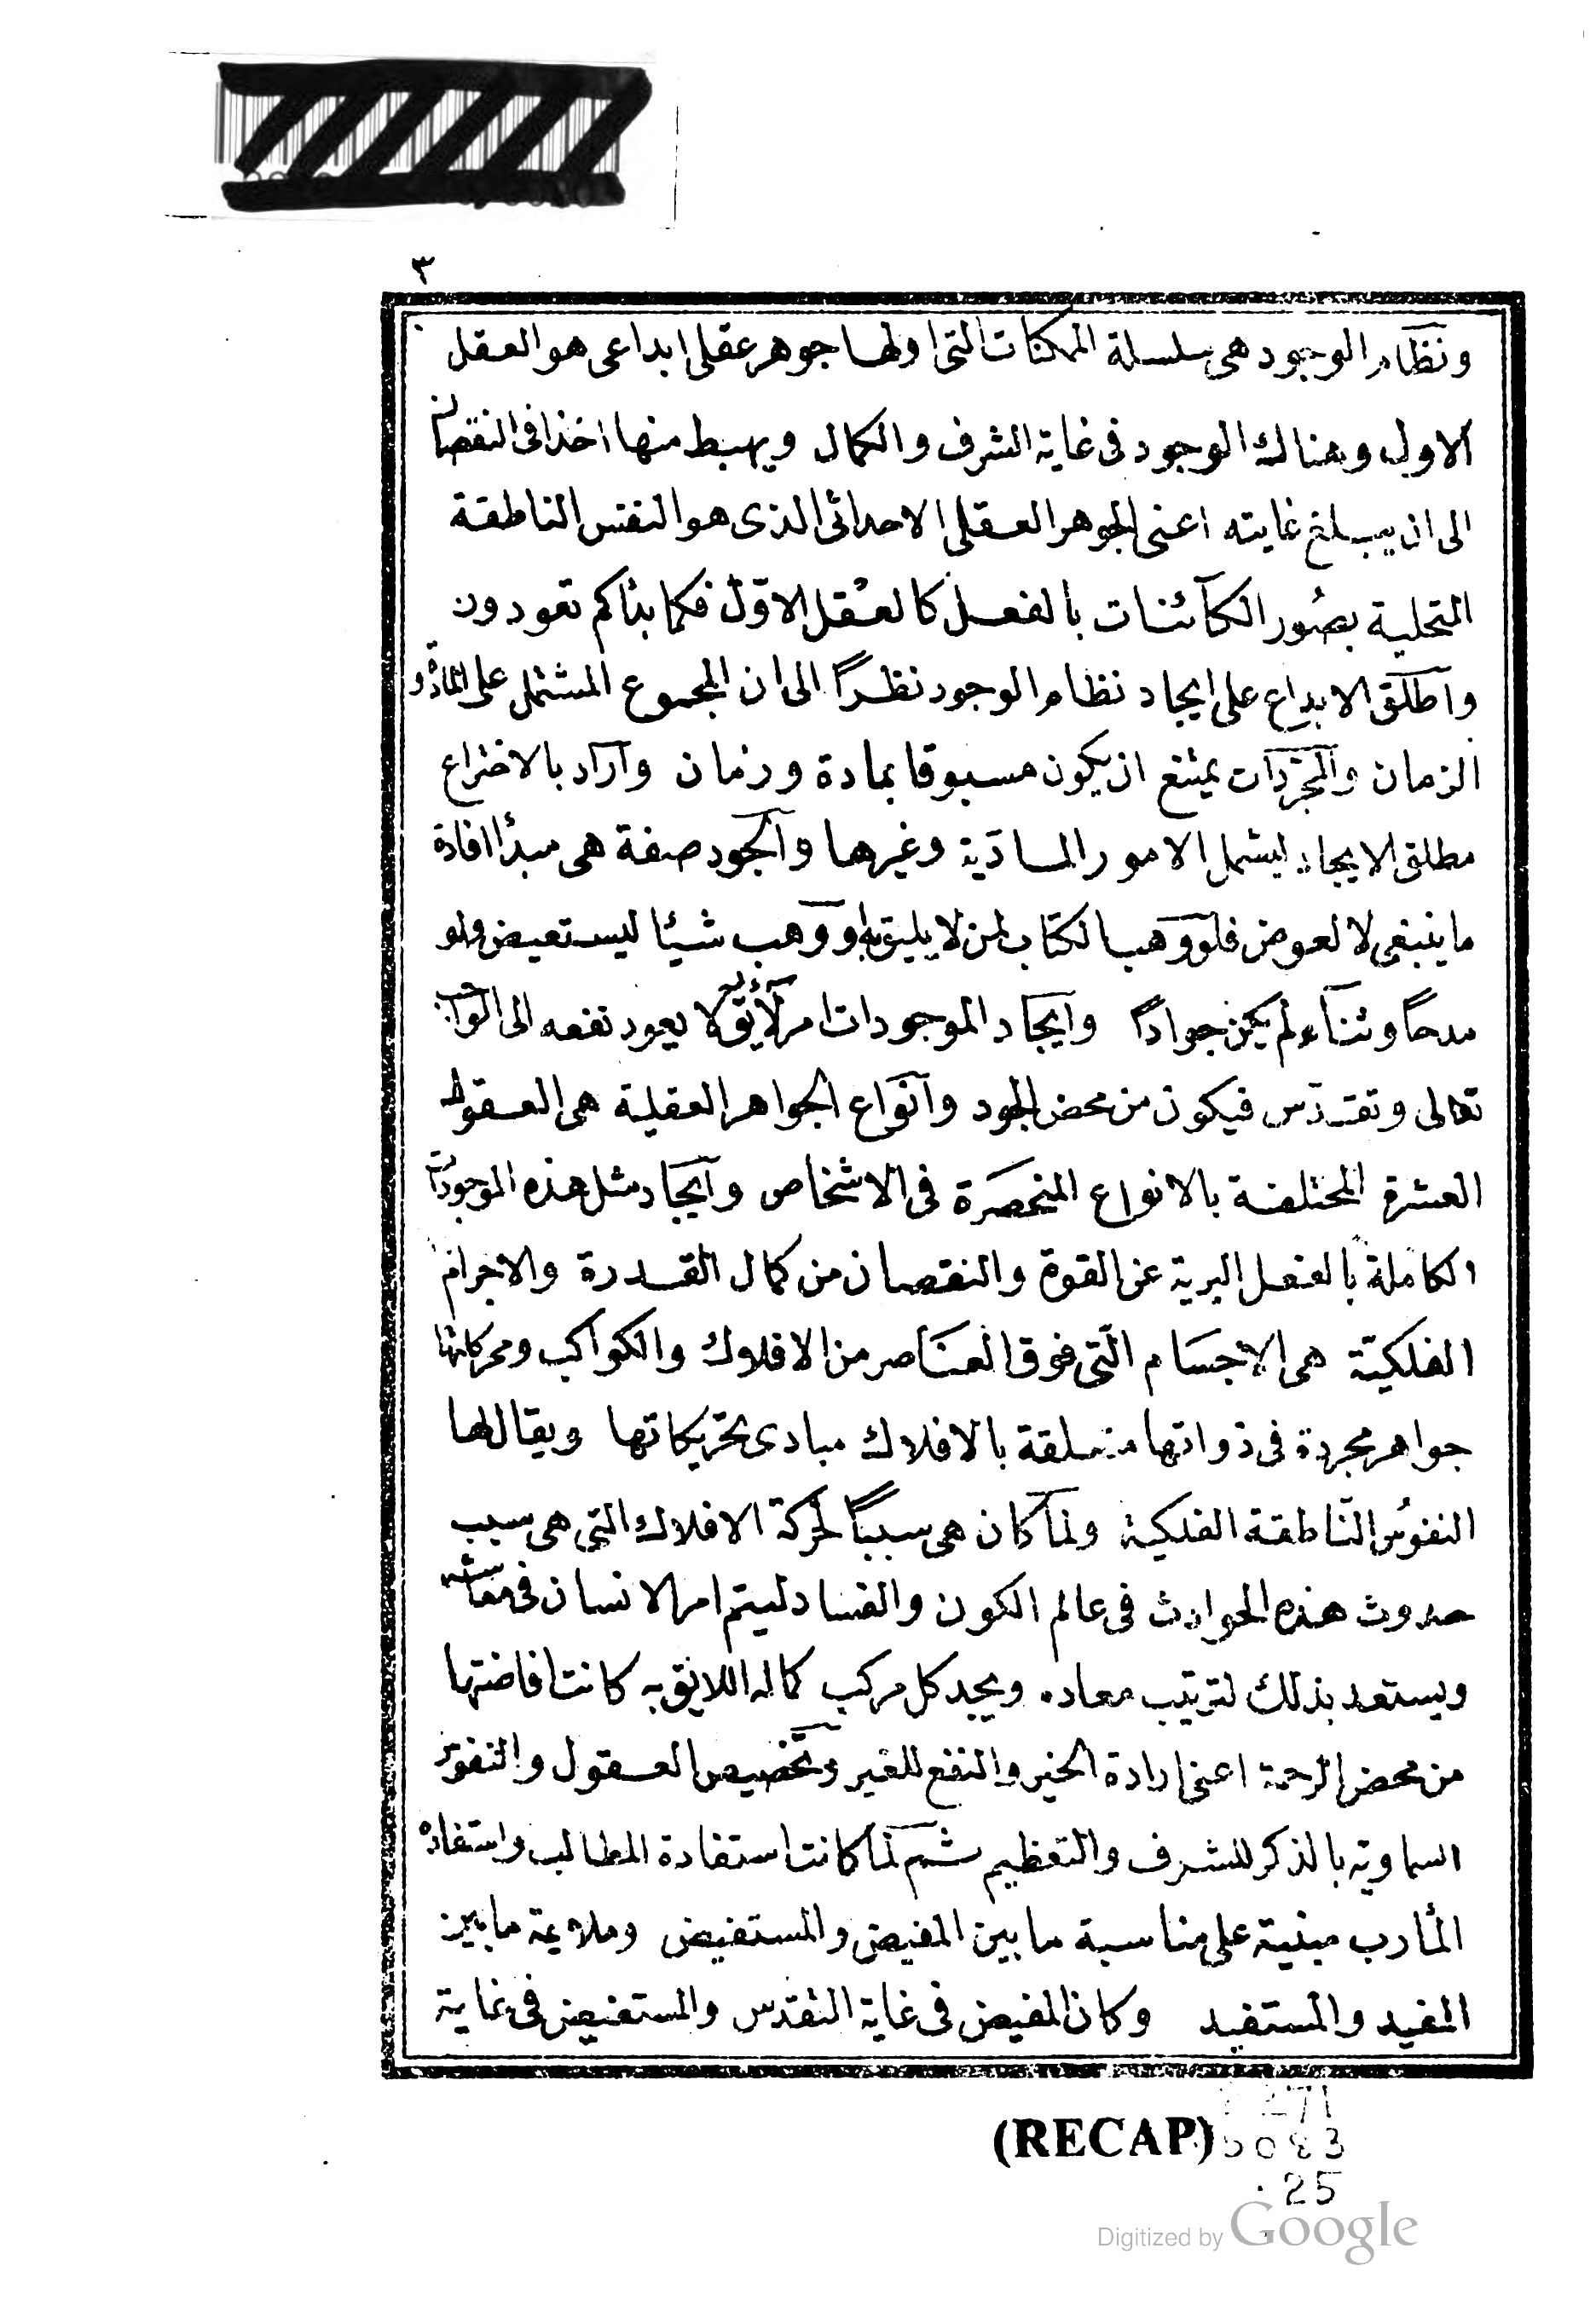 ٣
ونظام الوجود هى سلسلة الممكنات التى اولها جوهر عقلى ابداعى هو العقل
الاول وهناك الوجود فى غاية الشرف والكمال ويهبط منها اخذا فى النقصان
الى ان يبلغ غايته اعنى الجوهر العقلى الاحداثى الذى هو النفس الناطقة
المتحلية بصُور الكآئنات بالفعل كالعقل الاوّل فكما بداكم تعودون
واطلق الابداع على ايجاد نظام الوجود نظراً الى ان المجموع المشتمل على المادّة و
الزمان والمجرّدات يمتنع ان يكون مسبوقا بمادة وزمان واراد بالاختراع
مطلق الايجاد ليشمل الامور المادّية وغيرها والجود صفة هى مبدأ افادة
ما ينبغى لا لعوض فلو وهب الكتاب لمن لا يليق به او وهب شيئا ليستعيض ولو
مدحاً وثنآء لم يكن جواداً وايجاد الموجودات امر لايق لا يعود نفعه الى الواجب
تعالى وتقدّس فيكون من محض الجود وانواع الجواهر العقلية هى العقول
العشرة المختلفة بالانواع المنحصرة فى الاشخاص وايجاد مثل هذه الموجودات
الكاملة بالفعل البرية عن القوة والنقصان من كمال القدرة والاجرام
الفلكيّة هى الاجسام الّتى فوق العناصر من الافلاك والكواكب ومحركاتها
جواهر مجردة فى ذواتها متعلقة بالافلاك مبادى تحريكاتها ويقال لها
النفوسُ النّاطقة الفلكية ولما كان هى سبباً لحركة الافلاك التى هى سبب
حدوث هذه الحوادث فى عالم الكون والفساد ليتم امر الانسان فى معاشه
ويستعد بذلك لترتيب معاده ويجد كل مركب كماله اللايق به كانت افاضتها
من محض الرحمة اعنى ارادة الخير والنفع للغير وتخصيص العقول والنفوس
السماوية بالذكر للشرف والتعظيم ثم لما كانت استفادة المطالب واستفاده
المأرب مبنية على مناسبة ما بين المفيض والمستفيض وملايمة ما بين
المفيد والمستفيد وكان المفيض فى غاية التقدّس والمستفيض فى نهاية
(RECAP)
2271
5083
.25
Digitized by Google